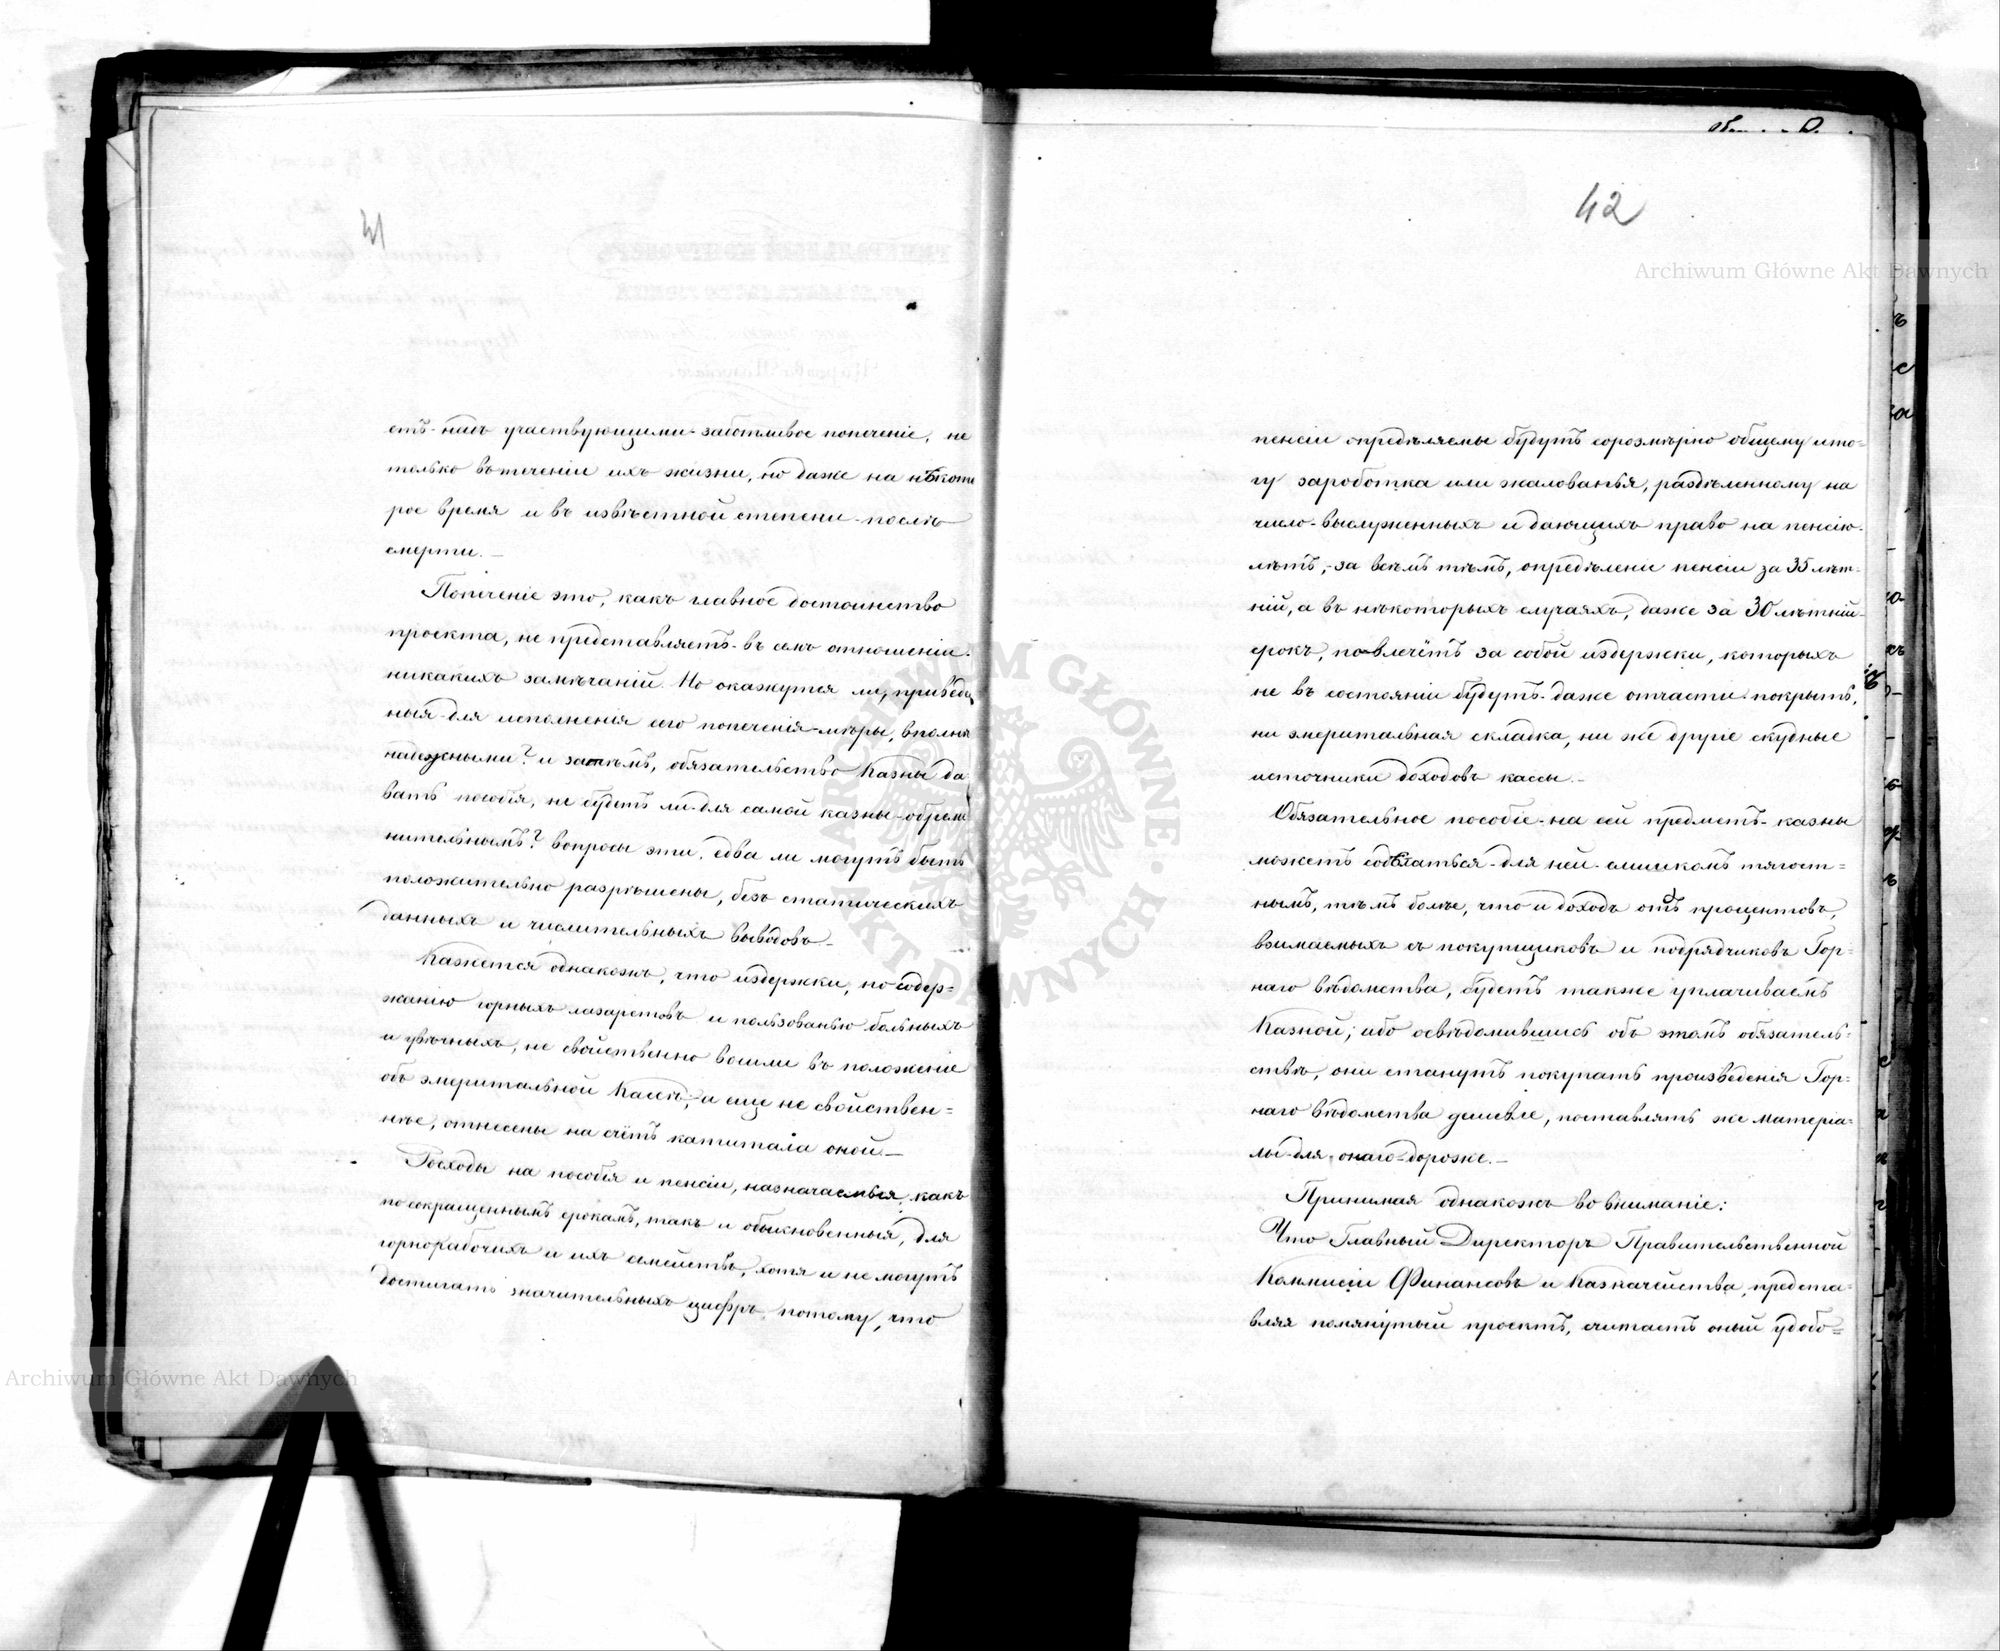 41
етъ надъ участвующими заботливое попеченіе, не
только въ теченіи ихъ жизни, но даже на нѣкото
рое время и въ извѣстной степени послѣ
смерти. —
Попеченіе это, какъ главное достоинство
проекта, не представляетъ въ семъ отношеніи
никакихъ замѣчаній. Но окажутся ли, приведен
ныя для исполненія сего попеченія мѣры, вполнѣ
надежными? и затѣмъ, обязательство Казны да
вать пособія, не будетъ ли для самой казны обреме
нительнымъ? вопросы эти, едва ли могутъ быть
положительно разрѣшены, безъ статическихъ
данныхъ и числительныхъ выводовъ —
Кажется однакожъ, что издержки, по содер=
жанію горныхъ лазаретовъ и пользованью больныхъ
и увѣчныхъ, не свойственно вошли въ положеніе
объ эмеритальной Кассѣ, и еще не свойствен=
нѣе, отнесены на счётъ капитала оной. —
Расходы на пособія и пенсіи, назначаемыя, какъ
по сокращеннымъ срокамъ, такъ и обыкновенныя, для
горнорабочихъ и ихъ семействъ, хотя и не могутъ
достигать значительныхъ цифръ, потому, что
42
пенсіи опредѣляемы будутъ соразмѣрно общему ито=
гу заработка или жалованья, раздѣленному на
число выслуженныхъ и дающихъ право на пенсію
лѣтъ, за всѣмъ тѣмъ, опредѣленіе пенсіи за 35 лѣт=
ній, а въ нѣкоторыхъ случаяхъ, даже за 30 лѣтній
срокъ, повлечётъ за собой издержки, которыхъ
не въ состояніи будутъ даже отчасти покрыть,
ни эмеритальная складка, ни же другіе скудные
источники доходовъ кассы. —
Обязательное пособіе на сей предметъ казны
можетъ содѣлаться для ней слишкомъ тягост=
нымъ, тѣмъ болѣе, что и доходъ отъ процентовъ,
взимаемыхъ съ покупщиковъ и подрядчиковъ Гор=
наго вѣдомства, будетъ также уплачиваемъ
Казной; ибо освѣдомившись объ этомъ обязатель=
ствѣ, они станутъ покупать произведенія Гор=
наго вѣдомства дешевле, поставлять же матеріа=
лы для онаго дороже. —
Принимая однакожъ во вниманіе:
Что Главный Директоръ Правительственной
Коммисіи Финансовъ и Казначейства, предста=
вляя помянутый проектъ, считаетъ оный удобо=
Archiwum Główne Akt Dawnych
Archiwum Główne Akt Dawnych
ARCHIWUM GŁÓWNE AKT DAWNYCH